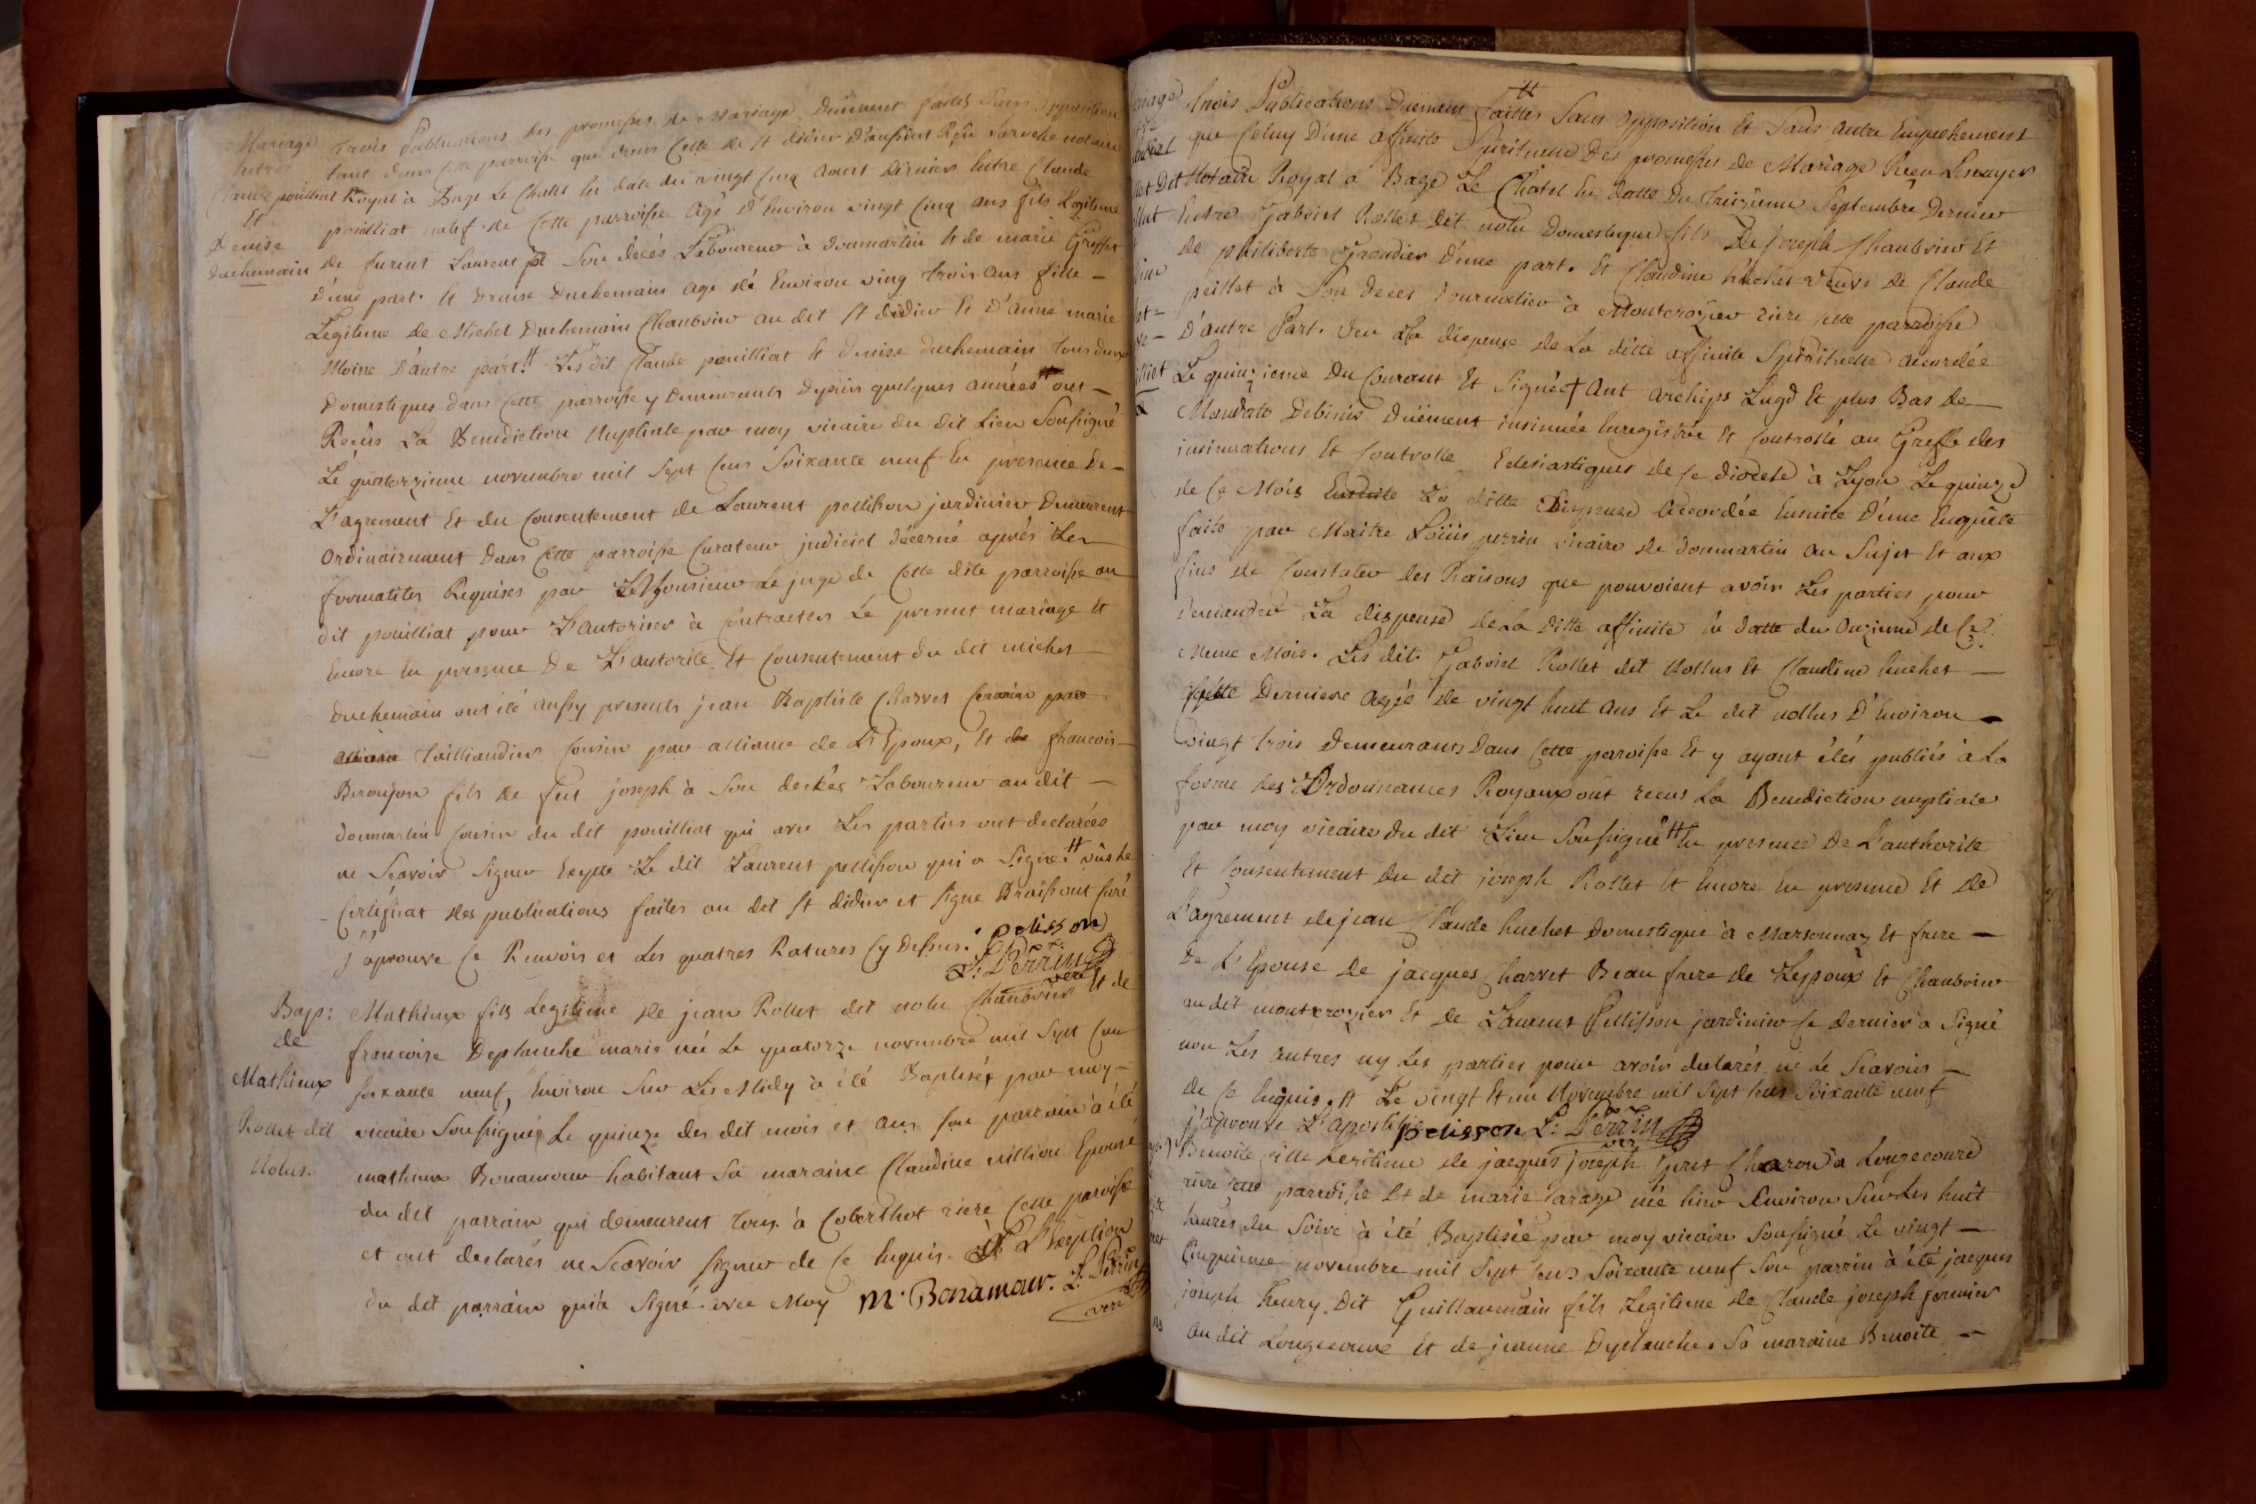 Mariage
Entre
Claude pouilliat
Et
Denise
duchemain
Trois Publications des promesses de Mariage Duëment faites Sans opposition
tant dans cette parroisse que dans Celle de St didier D'aussiat Reçu notaire
Royal à Bagé Le Chatel En date du vingt Cinq Aoust dernier Entre Claude
pouilliat natif de Cette parroisse Agé D'Environ vingt Cinq ans fils Legitime
de furent Laurent à Son décés Laboureur à donmartin Et de marie
D'une part. Et Denise Duchemain agé dé Environ ving trois ans fille –
Legitime de Michel Duchemain Chanvrier au dit St didier Et D'Anne marie
Moine D'autre part. Les dit Claude pouilliat Et denise duchemain tous deux
domestiques dans Cette parroisse y Demeurants Depuis quelques années ont –
Recûs La Benediction Nuptiale par moy vicaire du dit Lieu Soussigné
Le quatorzieme novembre mil Sept Cens Soixante neuf En presence De –
L'agrement Et du Consentement de Laurent pellisson jardinier Demeurent
ordinairement dans Cette parroisse Curateur judiciel décerné aprés Les
formalités Requises par Monsieur Le juge de Cette dite parroisse au
dit pouilliat pour L'autoriser à Contracter Le present mariage Et
Encore En presence De L'autorité Et Consentement du dit michel
duchemain ont été aussy presents jean Baptiste Charvet
Taillandier Cousin par alliance de L'Epoux, Et de francois
Beroujon fils de feu joseph à Son decés Laboureur au dit –
donmartin Cousin du dit pouilliat qui avec Les parties ont declarées
ne Scavoir Signer Exepté Le dit Laurent pellisson qui a Signé. vûs le
Certificat des publications faites au dit St didier et Signé curé
j'aprouve Ce Renvois et Les quatres Ratures Cy Dessus. pelisson
L: Perrin
vire
Bap:
de
Mathieux
Rollet dit
Nolus.
Mathieux fils Legitime de jean Rollet dit nolu Chanvrier Et de
francoise Deplanche marié née Le quatorze novembre mil Sept Cen
soixante neuf, Environ Sur Les Midy à été Baptisé par moy –
vicaire Soussigné Le quinze des dit mois et an Son parrain à été
mathieux Bonamour habitant Sa maraine Claudine million Epouse
du dit parrain qui demeurent tous à Coberthot riere Cette paroisse
et ont declarés ne Scavoir Signer de Ce Enquis. à L'Exeption
du dit parrain qui'à Signé avec Moy M. Bonamour. L. Perrin
vire
trois Publications Duëment faittes Sans opposition Et Sans autre Empechement
que Celuy D'une affinité Spirituelle Des promesses de Mariage Reçu
Notaire Royal à Bagé Le Chatel En datte Du treizieme Septembre Dernier
Entre Gabriel Rollet dit nolu Domestique fils De joseph Chanvrier Et
de philiberte D'une part. Et Claudine huchet veuve de Claude
peillet à Son deces journalier à Montcrozier riere Cette parroisse
D'autre Part. Veu La dispense de La ditte affinité Spirituelle accordée
Le quinzieme Du Courant Et Signée † Ant archieps Lugd Et plus Bas De
Mandato Duëment insinuée Enregistrée Et Controllé au Greffe des
insinuations Et Controlle Eclesiastiques de Ce diocese à Lyon Le quinze
de Ce Mois La ditte Dispense accordée Ensuite D'une Enquête
faite par Maitre Loüis perrin vicaire de donmartin Au Sujet Et aux
fins de Constater des Raisons que pouvoient avoir Les parties pour
demander La dispense de La ditte affinité En datte du onzieme de Ce
Meme Mois. Les dits Gabriel Rollet dit Nollus Et Claudine huchet –
Cette Derniere agée de vingt huit ans Et Le dit nollus D'Environ –
vingt trois Demeurants Dans Cette paroisse Et y ayant étés publiés à La
forme des Ordonnances Royaux ont recus La Benediction nuptiale
par moy vicaire du dit Lieu Soussigné En presence De L'authorité
Et Consentement Du dit joseph Rollet Et Encore En presence Et de
L'agrement de jean Claude huchet Domestique à Marsonnay Et frere –
De L'Epouse de jacques Charvet Beau frere de Lepoux Et Chanvrier
au dit montcrozier Et de Laurent Pellisson jardinier Ce dernier a Signé
non Les autres ny Les parties pour avoir declarés ne Le Scavoir –
de Ce Enquis. Le vingt Et un Novembre mil Sept Cens Soixante neuf
j'aprouve L'apostille pelisson L: Perrin
vire
Benoite fille Legitime de jacques joseph Charon à Longecoure
riere Cette parroisse Et de marie née hier Environ Sur Les huit
heures du Soire à été Baptisée par moy vicaire Soussigné Le vingt –
Cinquieme novembre mil Sept Cens Soixante neuf Son parrin à été jacques
joseph heury Dit Guillaumain fils Legitime de Claude joseph fermier
au dit Longecoure Et de jeanne Deplanche. Sa maraine Benoite –